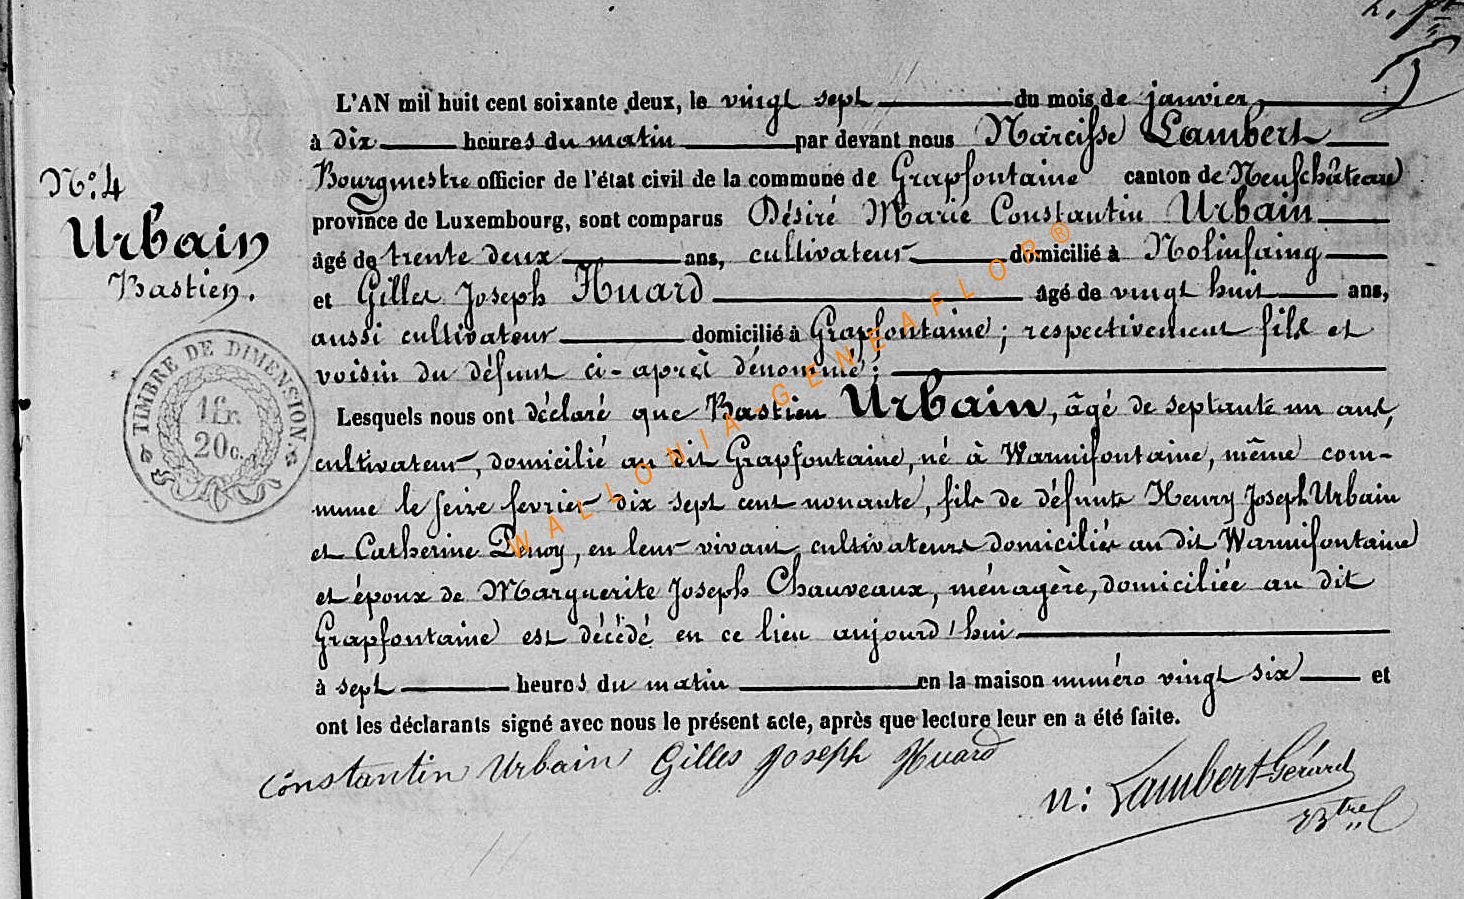 L'AN mil huit cent soixante deux, le vingt sept du mois de janvier
à dix heures du matin par devant nous Narcisse Lambert
N°: 4
Bourgmestre officier de l'état civil de la commune de Grapfontaine canton de Neufchâteau
Urbain
province de Luxembourg, sont comparus Désiré Marie Constantin Urbain
âgé de trente deux ans, cultivateur domicilié à Nolinfaing
Bastien.
et Gilles Joseph Huard âgé de vingt huit ans,
aussi cultivateur domicilié à Grapfontaine; respectivement fils et
voisin du défunt ci-après dénommé:
TIMBRE DE DIMENSION.
1 fr.
20 c.
Lesquels nous ont déclaré que Bastien Urbain, âgé de septante un ans,
cultivateur, domicilié au dit Grapfontaine, né à Warmifontaine, même com-
mune le seize fevrier dix sept cent nonante, fils de défunts Henry Joseph Urbain
et Catherine Denoy, en leur vivant cultivateurs domiciliés au dit Warmifontaine
et époux de Marguerite Joseph Chauveaux, ménagère, domiciliée au dit
Grapfontaine est décédé en ce lieu aujourd'hui
à sept heures du matin en la maison numéro vingt six et
ont les déclarants signé avec nous le présent acte, après que lecture leur en a été faite.
Constantin Urbain Gilles Joseph Huard
N: Lambert-Gérard
WALLONIA-GENEAFLOR®